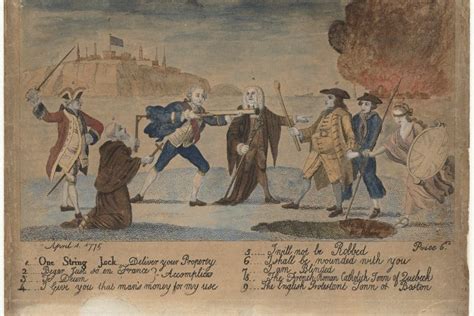 April 1. 1775
Price 6d.
1... One String Jack .. Deliver your Property
2... Begar Just so en France } Accomplices
3... Te Deum
4... I Give you that man's money for my use
5... I will not be Robbed
6... I shall be wounded with you
7... I am Blinded
8... The French Roman Catholick Town of Quebeck
9... The English Protestant Town of Boston